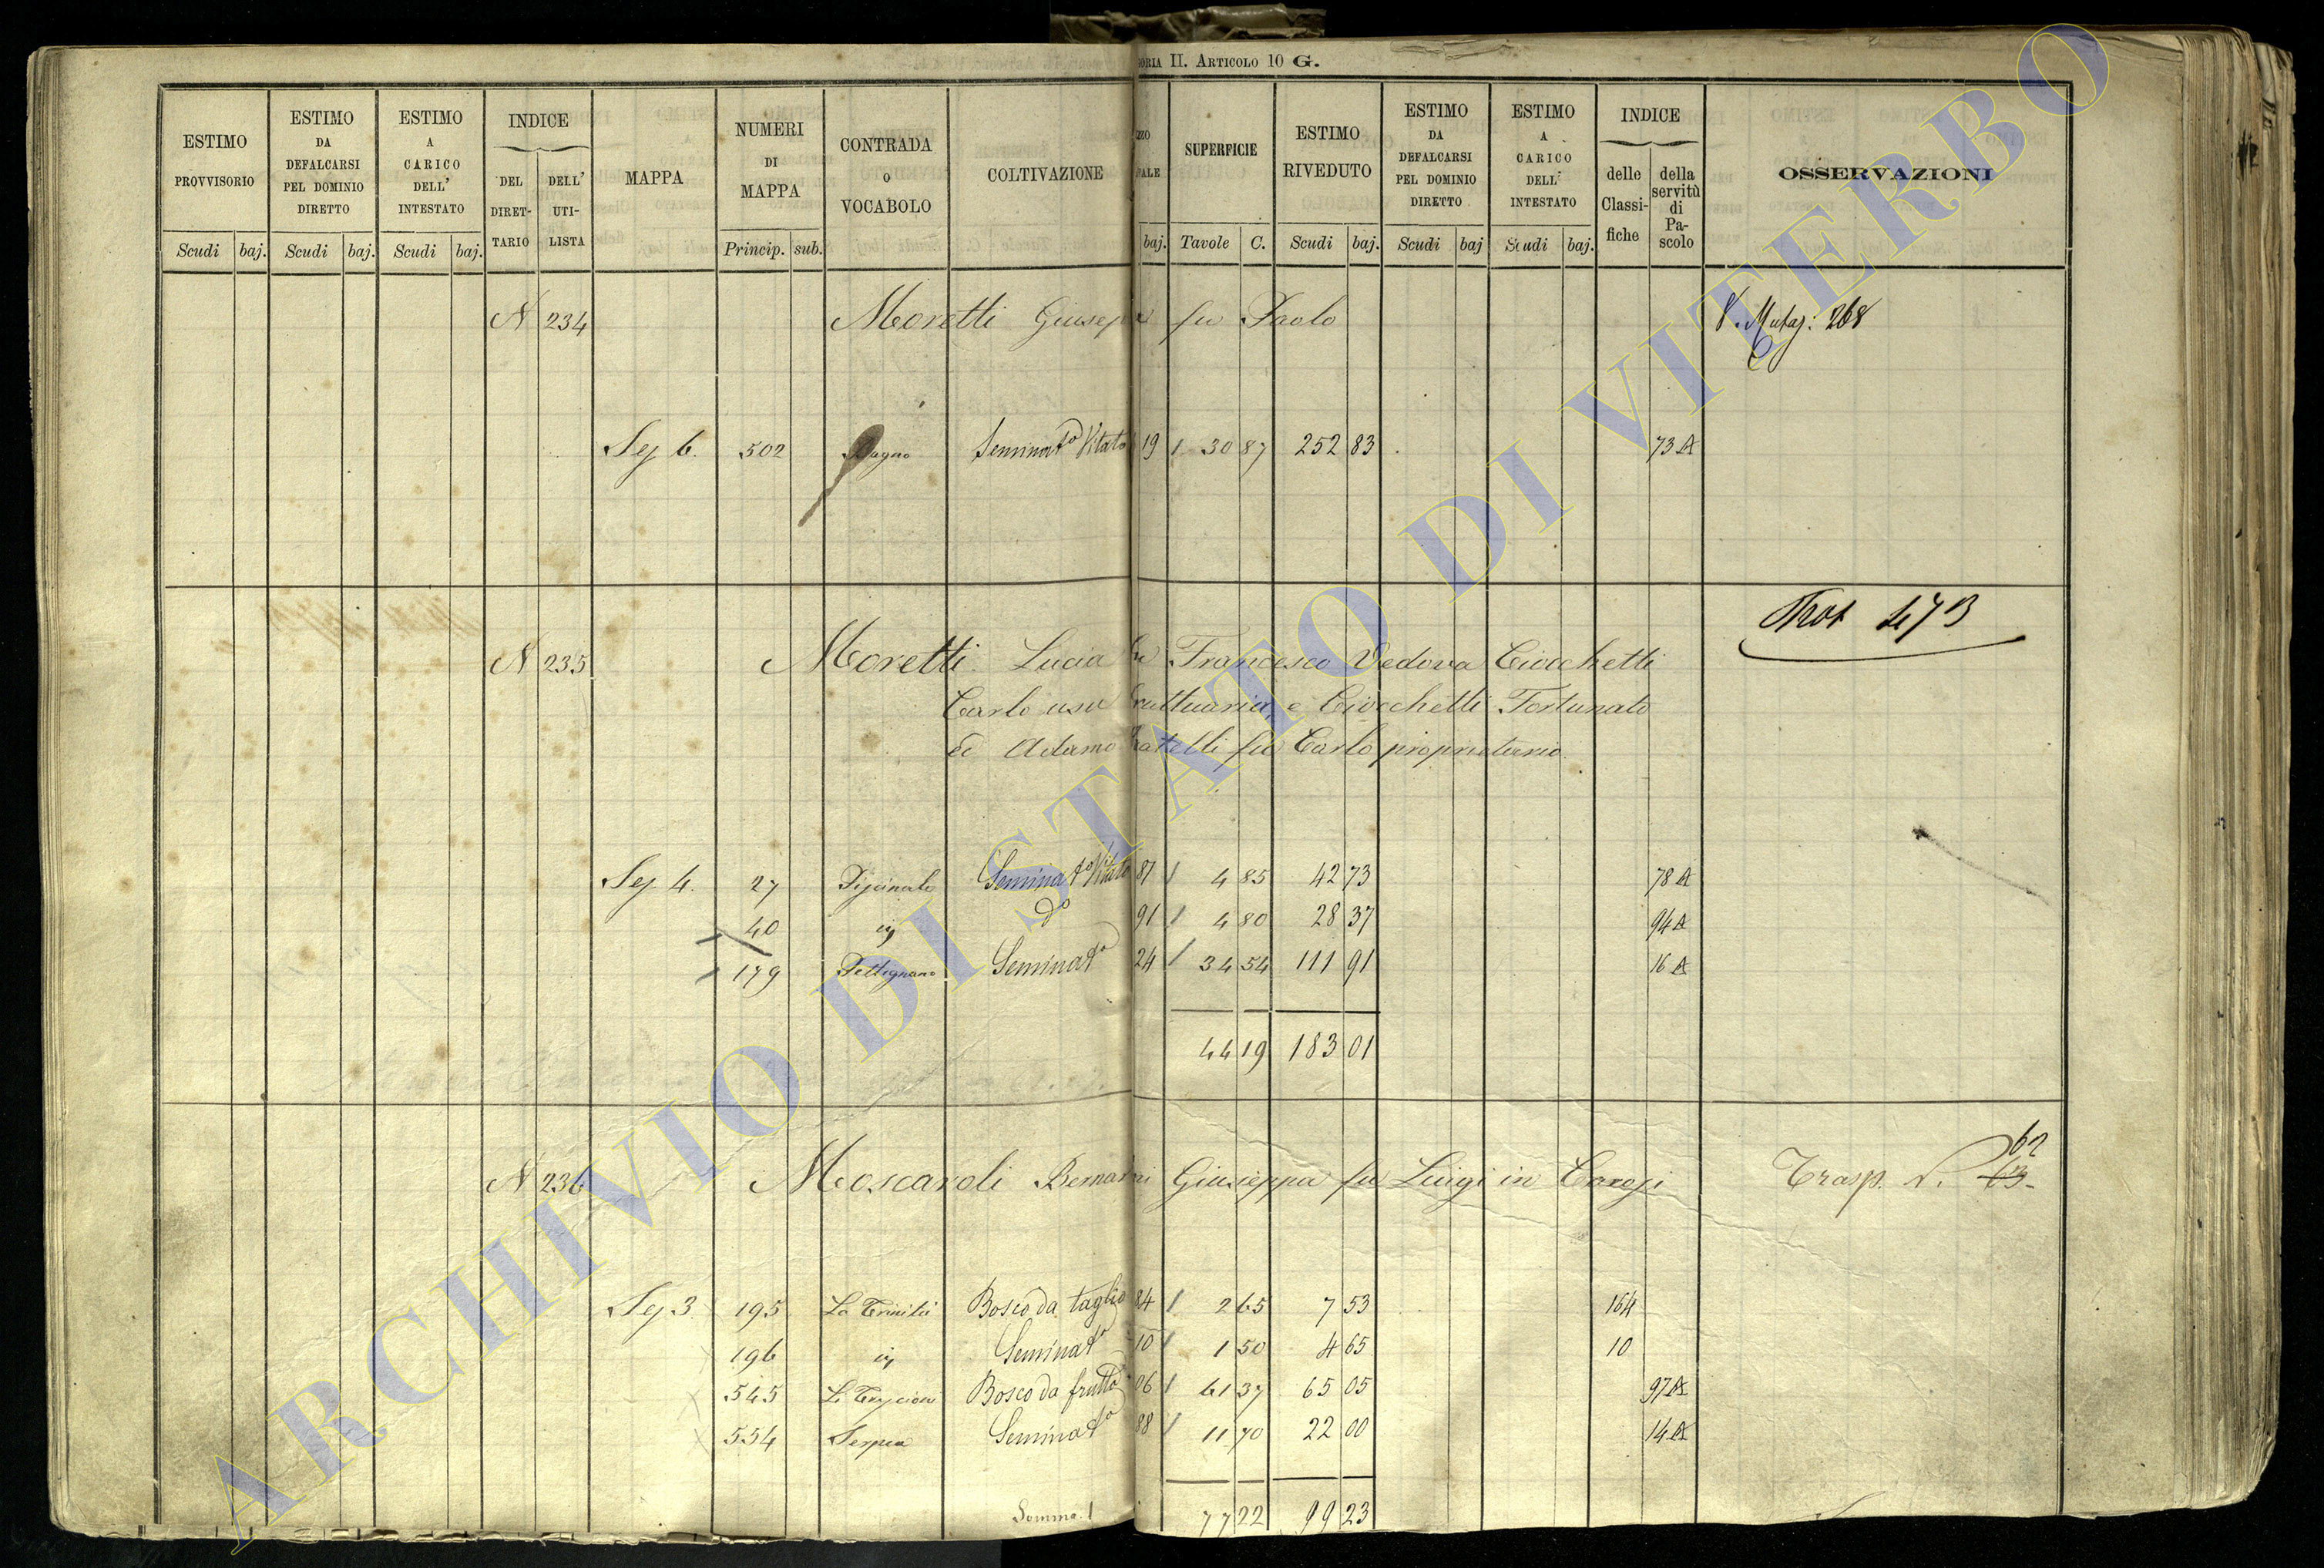 ORIA II. ARTICOLO 10 G.
ESTIMO PROVVISORIO
ESTIMO DA DEFALCARSI PEL DOMINIO DIRETTO
ESTIMO A CARICO DELL' INTESTATO
INDICE
DEL DIRET-TARIO
DELL' UTI-LISTA
MAPPA
NUMERI DI MAPPA
CONTRADA O VOCABOLO
COLTIVAZIONE
ZZO ALE
SUPERFICIE
ESTIMO RIVEDUTO
ESTIMO DA DEFALCARSI PEL DOMINIO DIRETTO
ESTIMO A CARICO DELL' INTESTATO
INDICE
delle Classi-fiche
della servitù di Pa-scolo
OSSERVAZIONI
Scudi baj. Scudi baj. Scudi baj. Princip. sub. baj. Tavole C. Scudi baj. Scudi baj Scudi baj.
N 234 Moretti Giusep fu Paolo V. Mutaz: 268
Sez 6. 502 Bagno Seminato Vitato 19 1 30 87 252 83 73 A
N 235 Moretti Lucia fu Francesco Vedova Ciocchetti
473
Carlo usufruttuaria e Ciocchetti Fortunato
ed Adamo fratelli fu Carlo proprietario
Sez 4. 27 Seminato Vitato 87 1 4 85 42 73 78 A
40 do 91 1 4 80 28 37 94 A
179 Pettignano Seminato 24 1 34 54 111 91 16 A
44 19 183 01
N 236 Moscaroli Bernardini Giuseppa fu Luigi in Trasp. N. 62 63
Sez 3. 195 La Trinità Bosco da taglio 84 1 2 65 7 53 164
196 Seminato 10 1 1 50 4 65 10
545 Bosco da frutto 06 1 61 37 65 05 97 A
554 Serpea Seminato 88 1 11 70 22 00 14 A
Somma 77 22 99 23
ARCHIVIO DI STATO DI VITERBO